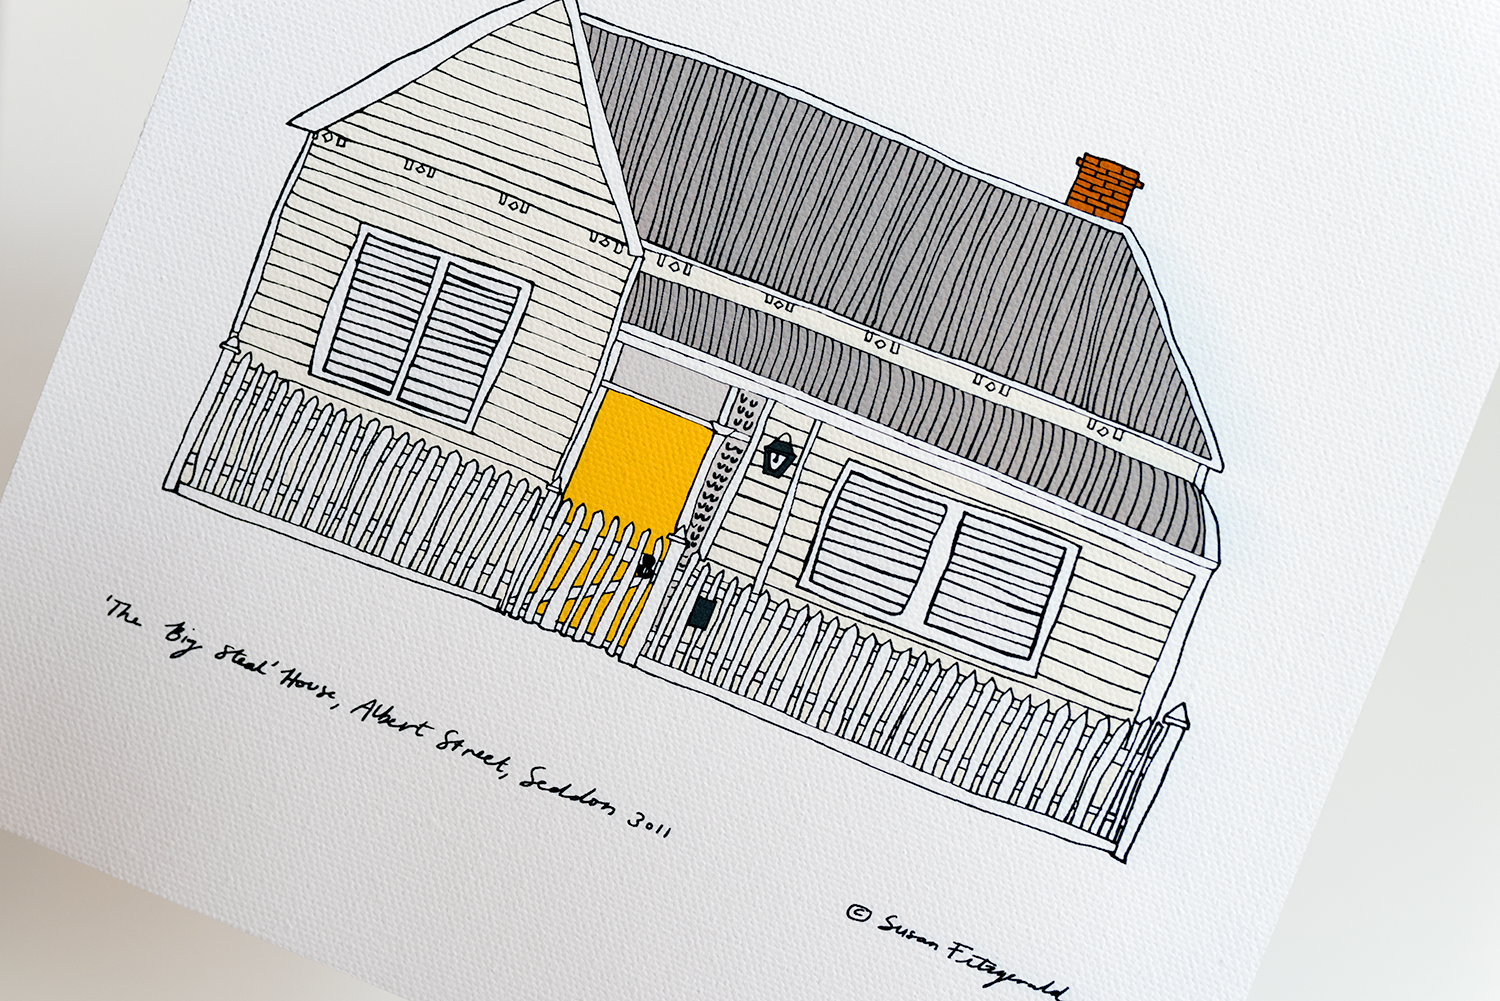 'The Big Steal' House, Albert Street, Seddon 3011
© Susan Fitzgerald